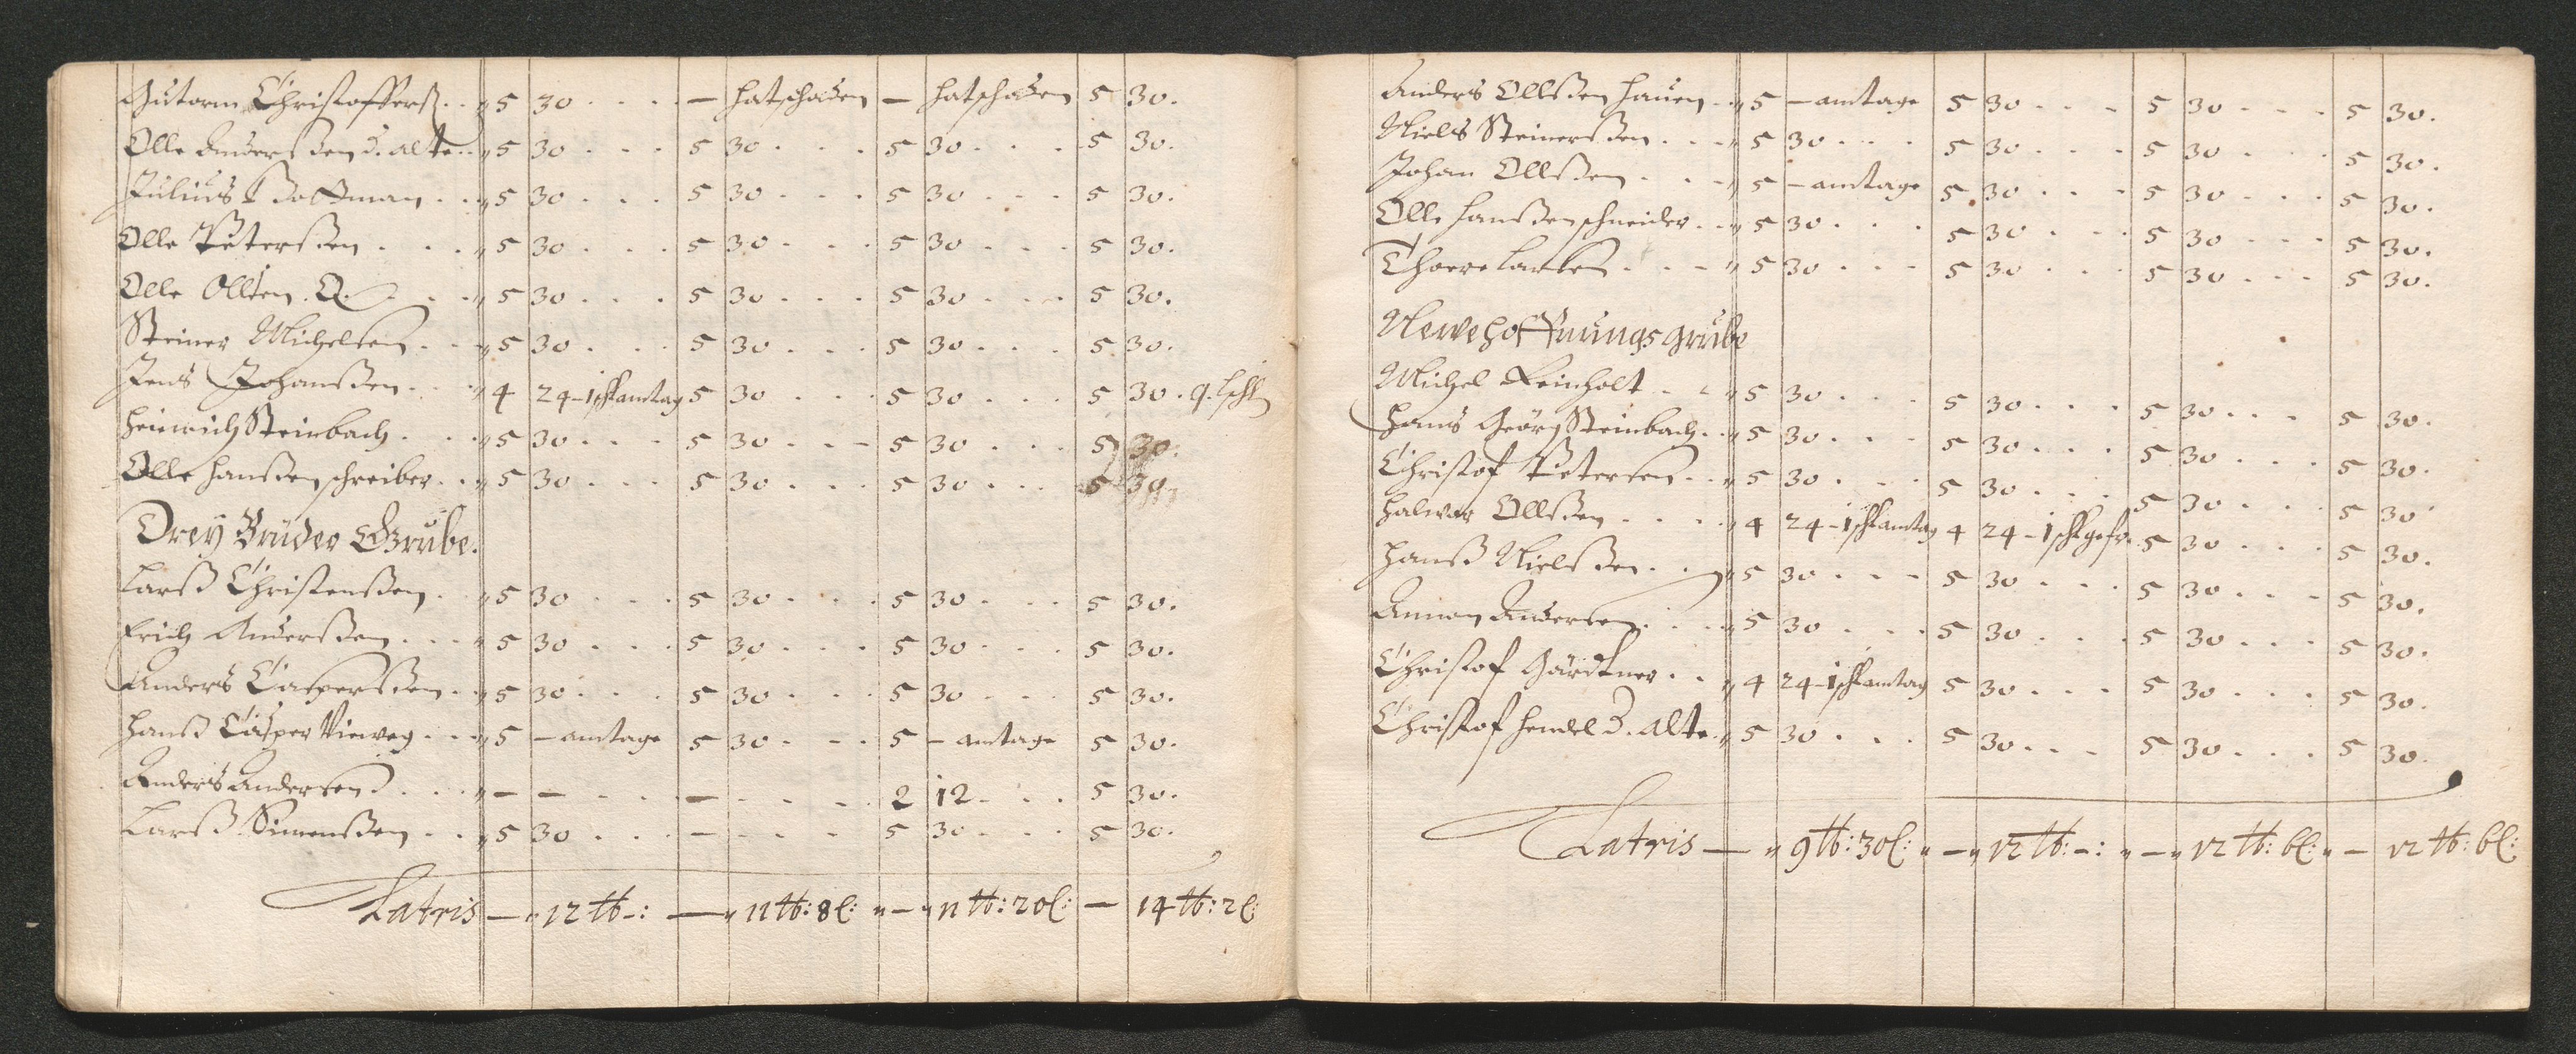 Gutorm Christofferß . . „ 5 30 . . . . — hatschaden — hatschaden 5 30.
Olle Anderßen d. alte . . „ 5 30 . . . 5 30 . . . 5 30 . . . 5 30.
Julius Hoffman . . „ 5 30 . . . 5 30 . . . 5 30 . . . 5 30.
Olle Peterßen . . . „ 5 30 . . . 5 30 . . . 5 30 . . . 5 30.
Olle Ollsen . . . „ 5 30 . . . 5 30 . . . 5 30 . . . 5 30.
Steiner Michelsen . . „ 5 30 . . . 5 30 . . . 5 30 . . . 5 30.
Jens Johanßen . . . „ 4 24 – 1 schamtag 5 30 . . . 5 30 . . . 5 30.
Heinrich Steinbach . . . „ 5 30 . . . 5 30 . . . 5 30 . . . 5 30.
Olle Hanßen schreiber . . „ 5 30 . . . 5 30 . . . 5 30 . . . 5 30
Dreÿ Brüder Grube.
Larß Christenßen . . „ 5 30 . . . 5 30 . . . 5 30 . . . 5 30.
Erich Anderßen . . . „ 5 30 . . . 5 30 . . . 5 30 . . . 5 30.
Anders Casperßen . . „ 5 30 . . . 5 30 . . . 5 30 . . . 5 30.
Hanß Casper Vieweg . . . „ 5 – amtage 5 30 . . . 5 – amtage 5 30.
Anders Andersen . . . „ — — . . . — . . . 2 12 . . . 5 30.
Larß Simenßen . . „ 5 30 . . . — . . . 5 30 . . . 5 30.
Latris — „ 12 tb –: — „ 11 tb: 8 l: „ — „ 11 tb: 20 l: — 14 tb: 2 l:
Anders Ollßen Hauen . . „ 5 – amtage 5 30 . . . 5 30 . . . 5 30.
Niels Steinerßen . . . „ 5 30 . . . 5 30 . . . 5 30 . . . 5 30.
Johan Ollßen . . . „ 5 – amtage 5 30 . . . 5 30 . . . 5 30.
Olle Hanßen schneider . . „ 5 30 . . . 5 30 . . . 5 30 . . . 5 30.
Thore Larsen . . . „ 5 30 . . . 5 30 . . . 5 30 . . . 5 30.
Newe hoffnungs grube
Michel Reinholt . . „ 5 30 . . . 5 30 . . . 5 30 . . . 5 30.
Hans Geörg Steinbach . . „ 5 30 . . . 5 30 . . . 5 30 . . . 5 30.
Christof Petersen . . „ 5 30 . . . 5 30 . . . 5 30 . . . 5 30.
Halwar Ollßen . . . „ 4 24 – 1 schamtag 4 24 – 1 schgefr. 5 30 . . . 5 30.
Hanß Nielßen . . „ 5 30 . . . 5 30 . . . 5 30 . . . 5 30.
Amon Andersen . . . „ 5 30 . . . 5 30 . . . 5 30 . . . 5 30.
Christof Gärtner . . „ 4 24 – 1 schamtag 5 30 . . . 5 30 . . . 5 30.
Christof Hendel d. alte . „ 5 30 . . . 5 30 . . . 5 30 . . . 5 30.
Latris — „ 9 tb: 30 l: „ — „ 12 tb: –: „ — „ 12 tb: 6 l: „ — 12 tb: 6 l: